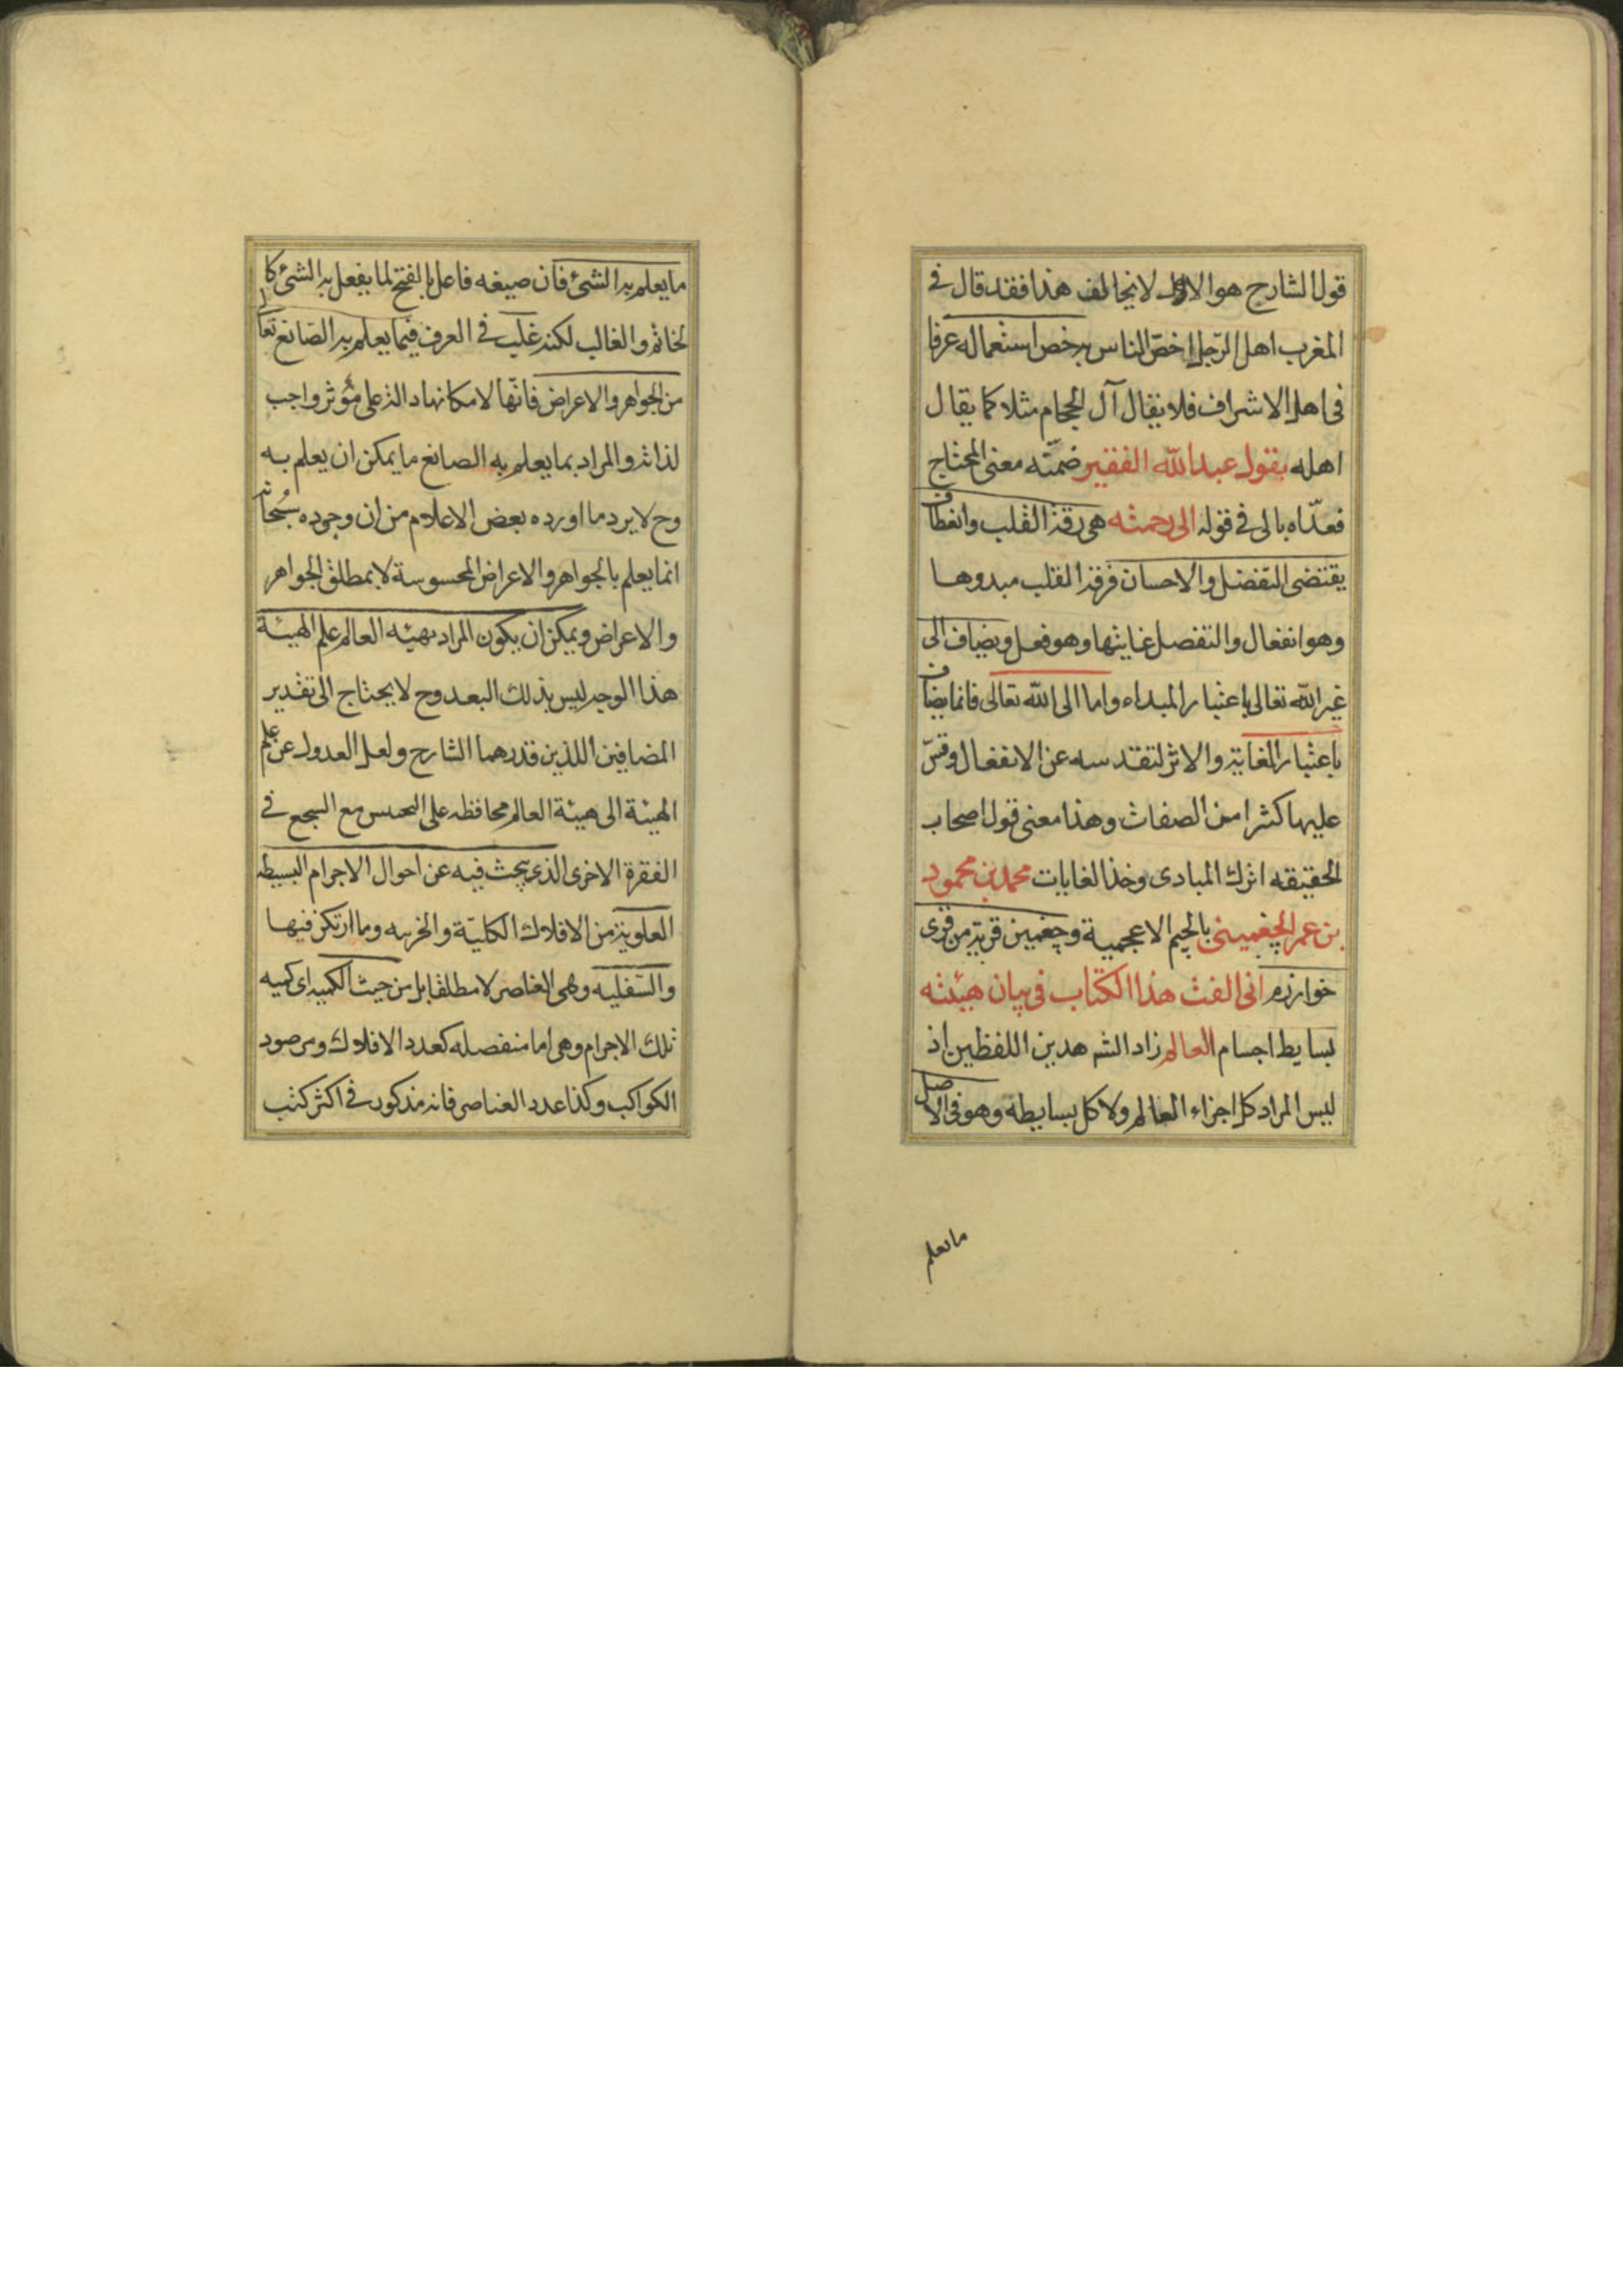 قول الشارح هو الال لا يخالف هذا فقد قال في
المغرب اهل الرّجل اخصّ الناس به خص استعماله عرفا
فى اهل الاشراف فلا يقال آل الحجام مثلا كما يقال
اهله يقول عبد الله الفقير ضمّنه معنى المحتاج
فعدّاه بالى فى قوله الى رحمته هى رقة القلب وانعطاف
يقتضى التفضل والاحسان فرقة القلب مبدوها
وهو انفعال والتفضل غايتها وهو فعل ويضاف الى
غير الله تعالى باعتبار المبداء واما الى الله تعالى فانما يضاف
باعتبار الغاية والاثر لتقدسه عن الانفعال وقسّ
عليها كثرا من الصفات وهذا معنى قول اصحاب
الحقيقه اترك المبادى وخذ الغايات محمد بن محمود
بن عمر الچغمينى بالجيم الاعجمية وچغمين قرية من قرى
خوارزم انى الفت هذا الكتاب فى بيان هيئته
بسايط اجسام العالم زاد الشـ هدين اللفظين اذ
ليس المراد كل اجزاء العالم ولا كل بسايطه وهو فى الاصل
ما يعلم
ما يعلم به الشئ فان صيغه فاعل بالفتح لما يفعل به الشئ كا
لخاتم والغالب لكنه غلب فى العرف فيما يعلم به الصّانع تعا
من الجواهر والاعراض فانّها لامكانها دالة على مؤثر واجب
لذاته والمراد بما يعلم به الصانع ما يمكن ان يعلم به
وح لا يرد ما اورده بعض الاعلام من ان وجوده سُبحانه
انما يعلم بالجواهر والاعراض المحسوسة لا بمطلق الجواهر
والاعراض ويمكن ان يكون المراد بهيئه العالم علم الهيئة
هذا الوجه ليس بذلك البعد وح لا يحتاج الى تقدير
المضافين اللذين قدرهما الشارح ولعل العدول عن علم
الهيئة الى هيئة العالم محافظه على السجع فى
الفقرة الاخرى الذى يبحث فيه عن احوال الاجرام البسيطه
العلوية من الافلاك الكليّة والجزييه وما ارتكز فيها
والسّفليه وهى العناصر لا مطلقا بل من حيث الكميه اى كميه
تلك الاجرام وهى اما منفصله كعدد الافلاك ومرصود
الكواكب وكذا عدد العناصر فانه مذكور فى اكثر كتب